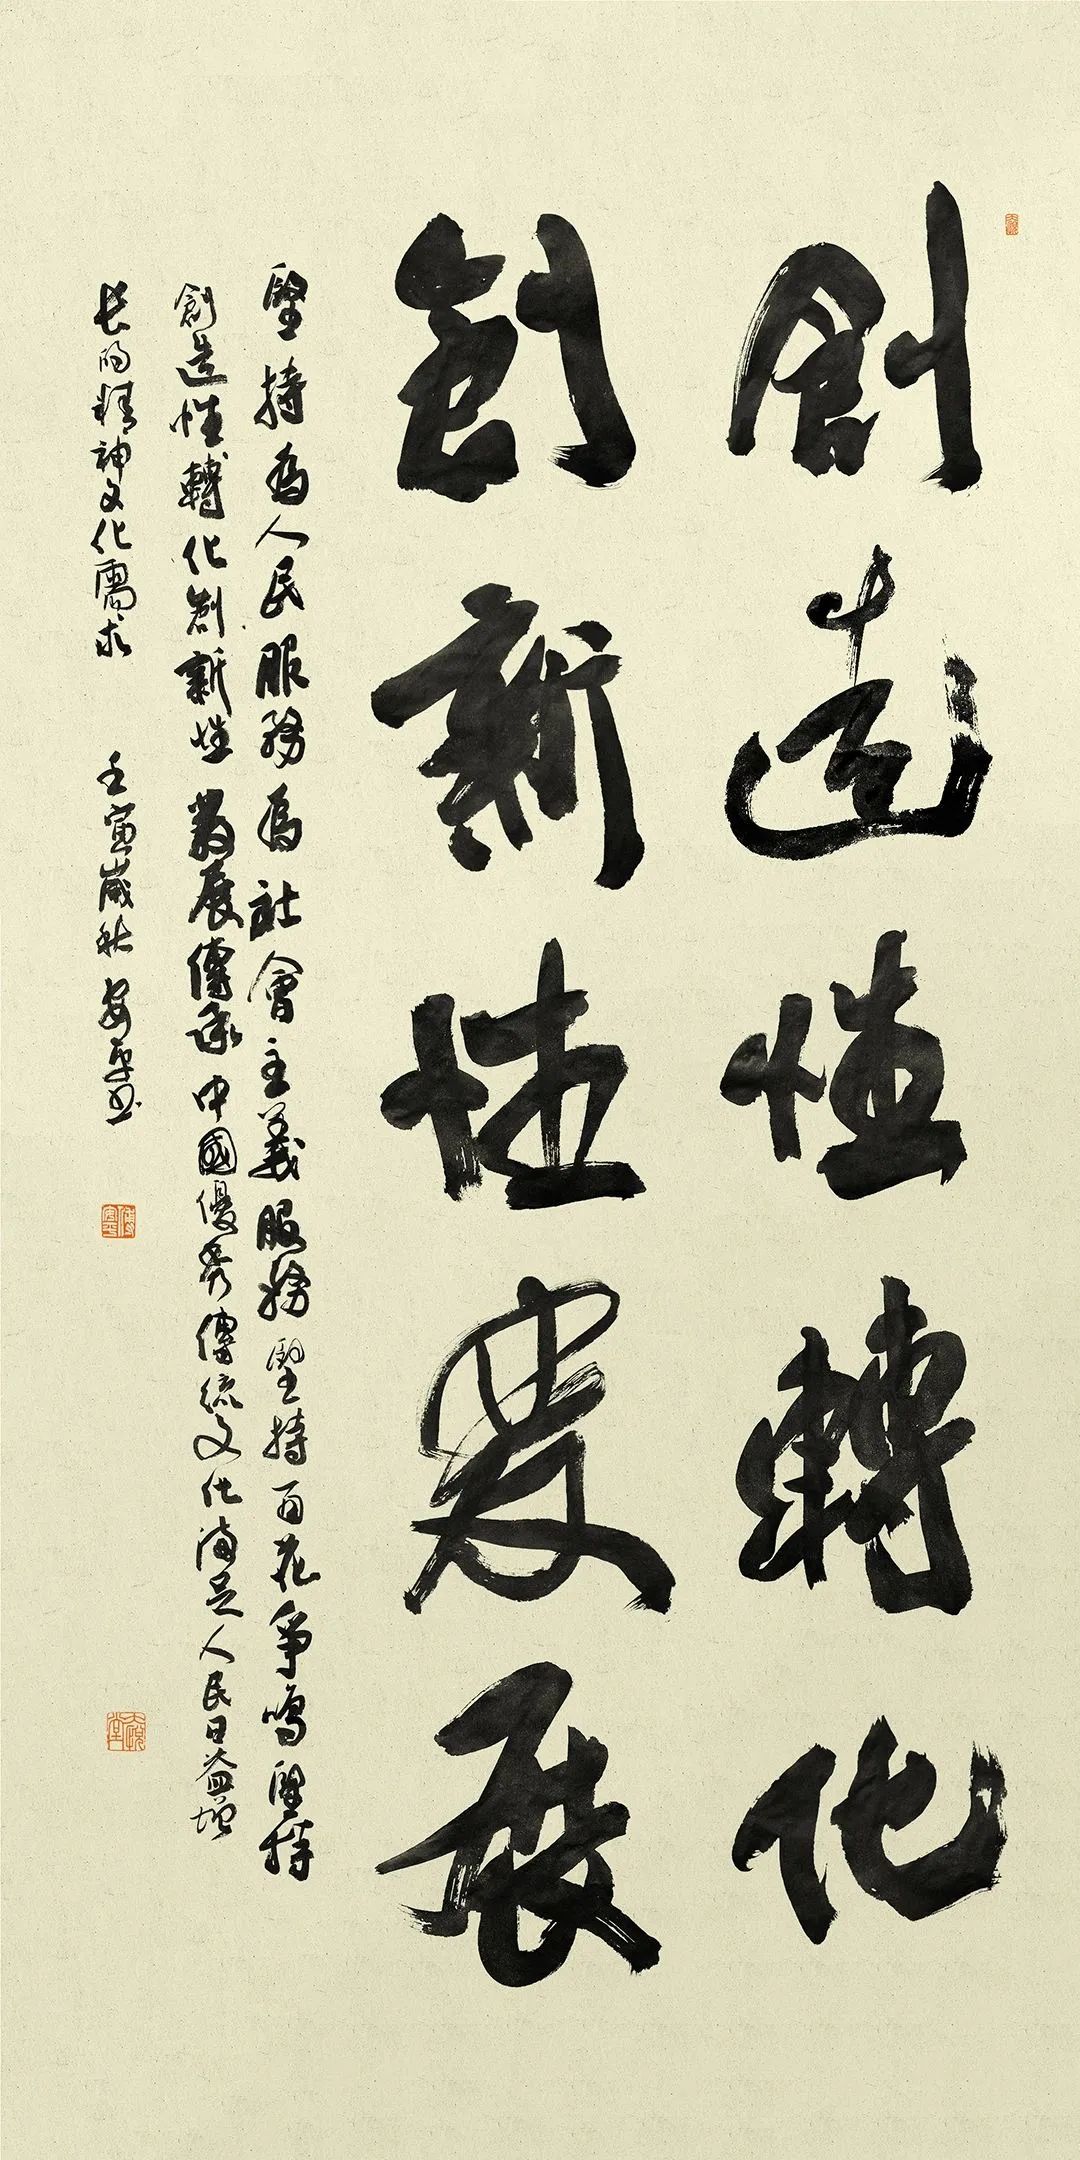 創造性轉化
創新性發展
堅持為人民服務為社會主義服務堅持百花爭鳴堅持
創造性轉化創新性發展傳承中國優秀傳統文化滿足人民日益增
長的精神文化需求 壬寅歲秋 安平書